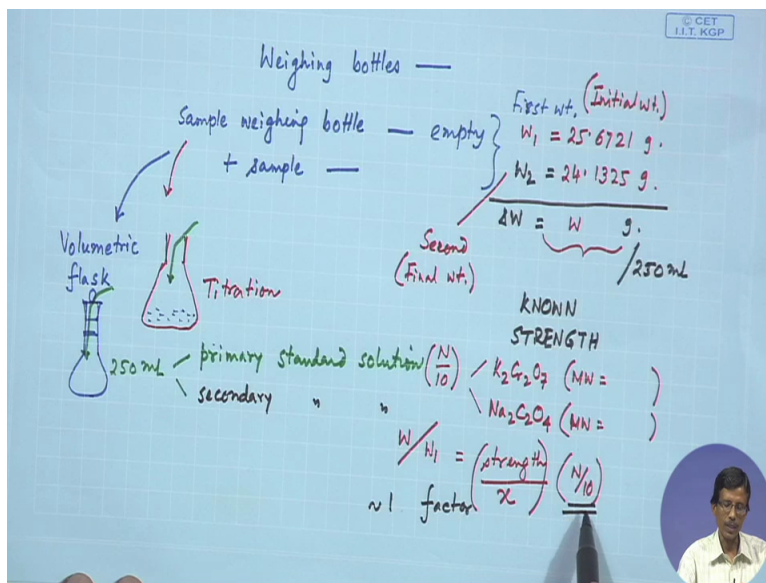 © CET
I.I.T. KGP
Weighing bottles —
Sample weighing bottle — empty
+ sample —
First wt. (Initial wt.)
W₁ = 25.6721 g.
W₂ = 24.1325 g.
ΔW = W g.
/250 mL
Second
(Final wt.)
Volumetric
flask
Titration
250 mL
primary standard solution (N/10)
secondary " "
KNOWN
STRENGTH
K₂Cr₂O₇ (MW = )
Na₂C₂O₄ (MW = )
W/W₁ = (strength/x) (N/10)
~1 factor